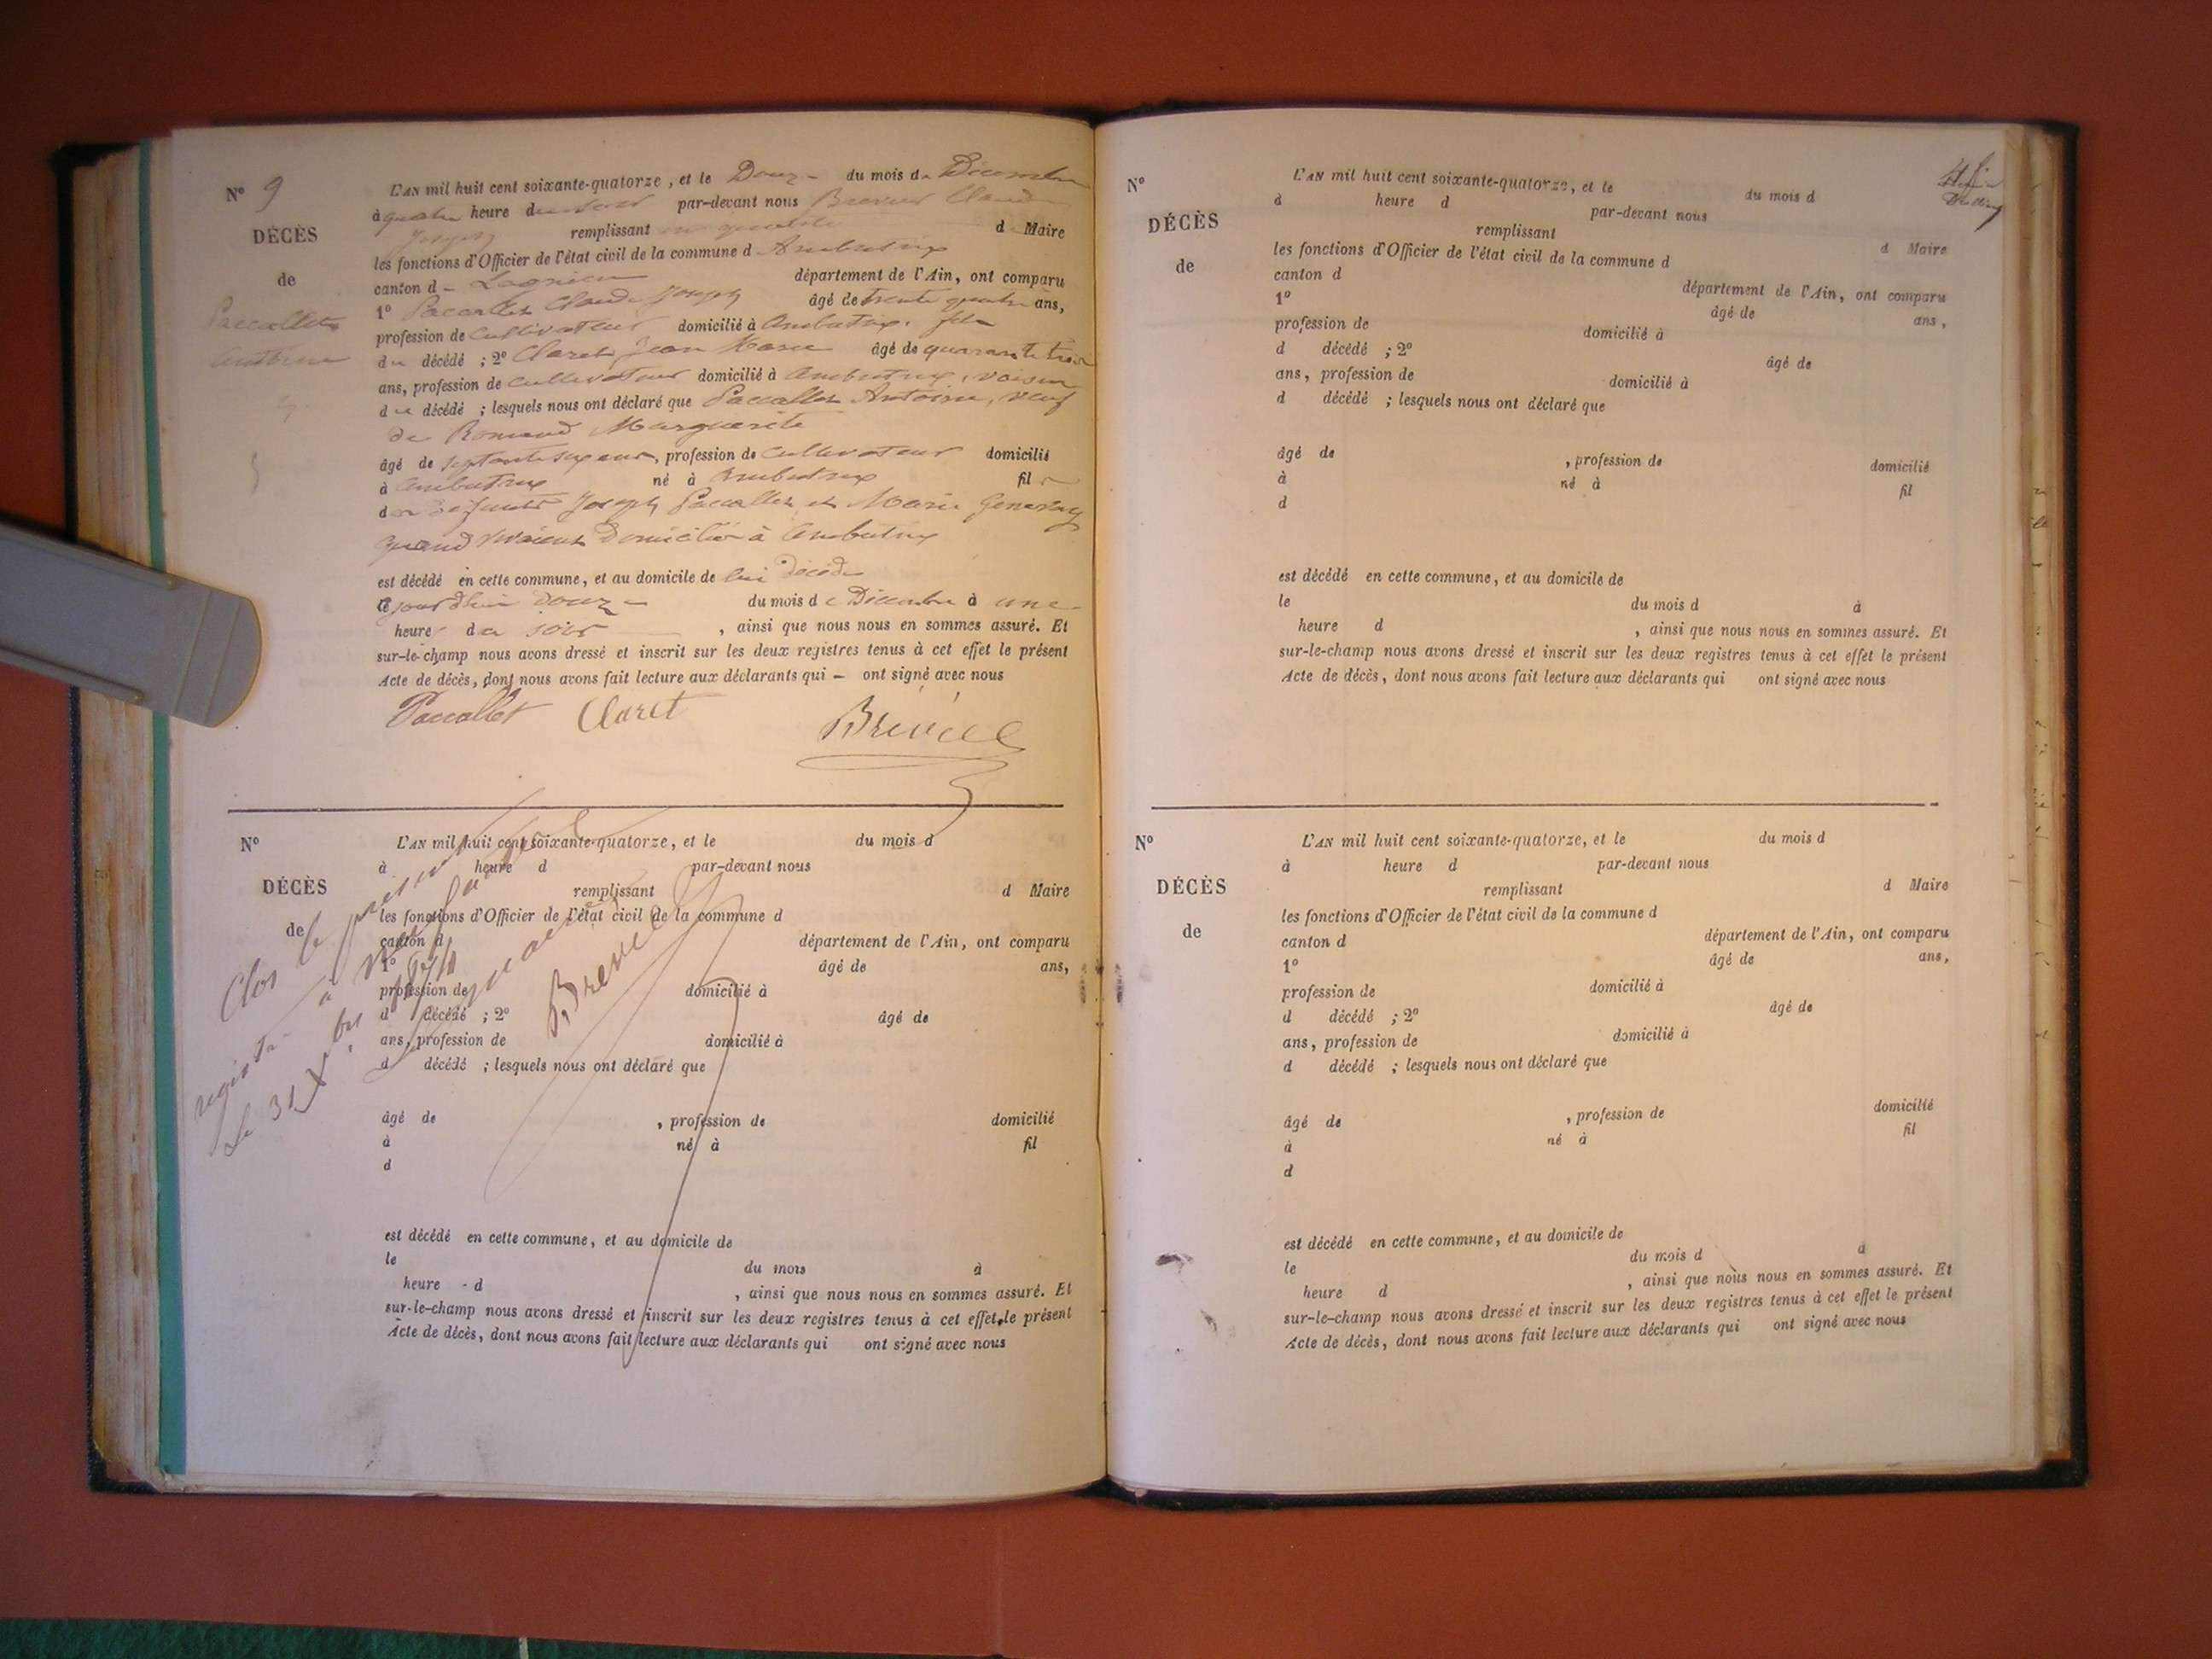 N° 9
DÉCÈS
de
Paccallet
Antoine
L'AN mil huit cent soixante-quatorze, et le Douze du mois de Décembre
à quatre heure du soir par-devant nous Brevet Claude
Joseph remplissant en qualité de Maire
les fonctions d'Officier de l'état civil de la commune d Ambutrix
canton de Lagnieu département de l'Ain, ont comparu
1° Pacallet Claude Joseph âgé de trente quatre ans,
profession de Cultivateur domicilié à Ambutrix, fils
du décédé ; 2° Claret Jean Marie âgé de quarante trois
ans, profession de Cultivateur domicilié à Ambutrix, voisin
du décédé ; lesquels nous ont déclaré que Paccallet Antoine, veuf
de Romand Marguerite
âgé de septante six ans, profession de Cultivateur domicilié
à Ambutrix né à Ambutrix fils
des défunts Joseph Paccallet et Marie
quand vivaient domiciliés à Ambutrix
est décédé en cette commune, et au domicile de lui décédé
ce jourdhui douze du mois de Décembre à une
heure du soir , ainsi que nous nous en sommes assuré. Et
sur-le-champ nous avons dressé et inscrit sur les deux registres tenus à cet effet le présent
Acte de décès, dont nous avons fait lecture aux déclarants qui – ont signé avec nous
Paccallet Claret
N°
DÉCÈS
de
L'AN mil huit cent soixante-quatorze, et le du mois d
à heure d par-devant nous
remplissant d Maire
les fonctions d'Officier de l'état civil de la commune d
canton d département de l'Ain, ont comparu
1° âgé de ans,
profession de domicilié à
d décédé ; 2° âgé de
ans, profession de domicilié à
d décédé ; lesquels nous ont déclaré que
âgé de , profession de domicilié
à né à fil
d
est décédé en cette commune, et au domicile de
le du mois à
heure d , ainsi que nous nous en sommes assuré. Et
sur-le-champ nous avons dressé et inscrit sur les deux registres tenus à cet effet, le présent
Acte de décès, dont nous avons fait lecture aux déclarants qui ont signé avec nous
Clos le présent
registre à
le 31 Xbre 1874
N°
DÉCÈS
de
L'AN mil huit cent soixante-quatorze, et le du mois d
à heure d par-devant nous
remplissant d Maire
les fonctions d'Officier de l'état civil de la commune d
canton d département de l'Ain, ont comparu
1° âgé de ans,
profession de domicilié à
d décédé ; 2° âgé de
ans, profession de domicilié à
d décédé ; lesquels nous ont déclaré que
âgé de , profession de domicilié
à né à fil
d
est décédé en cette commune, et au domicile de
le du mois d à
heure d , ainsi que nous nous en sommes assuré. Et
sur-le-champ nous avons dressé et inscrit sur les deux registres tenus à cet effet le présent
Acte de décès, dont nous avons fait lecture aux déclarants qui ont signé avec nous
N°
DÉCÈS
de
L'AN mil huit cent soixante-quatorze, et le du mois d
à heure d par-devant nous
remplissant d Maire
les fonctions d'Officier de l'état civil de la commune d
canton d département de l'Ain, ont comparu
1° âgé de ans,
profession de domicilié à
d décédé ; 2° âgé de
ans, profession de domicilié à
d décédé ; lesquels nous ont déclaré que
âgé de , profession de domicilié
à né à fil
d
est décédé en cette commune, et au domicile de
le du mois d à
heure d , ainsi que nous nous en sommes assuré. Et
sur-le-champ nous avons dressé et inscrit sur les deux registres tenus à cet effet le présent
Acte de décès, dont nous avons fait lecture aux déclarants qui ont signé avec nous